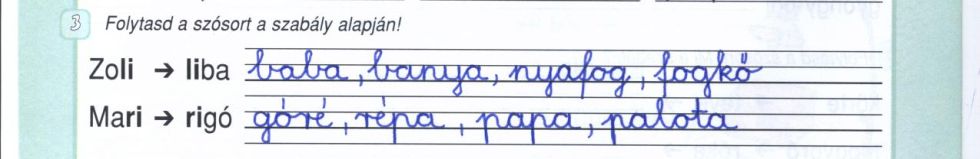 3 Folytasd a szósort a szabály alapján!
Zoli → liba baba, banya, nyafog, fogkő
Mari → rigó góré, répa, papa, palota